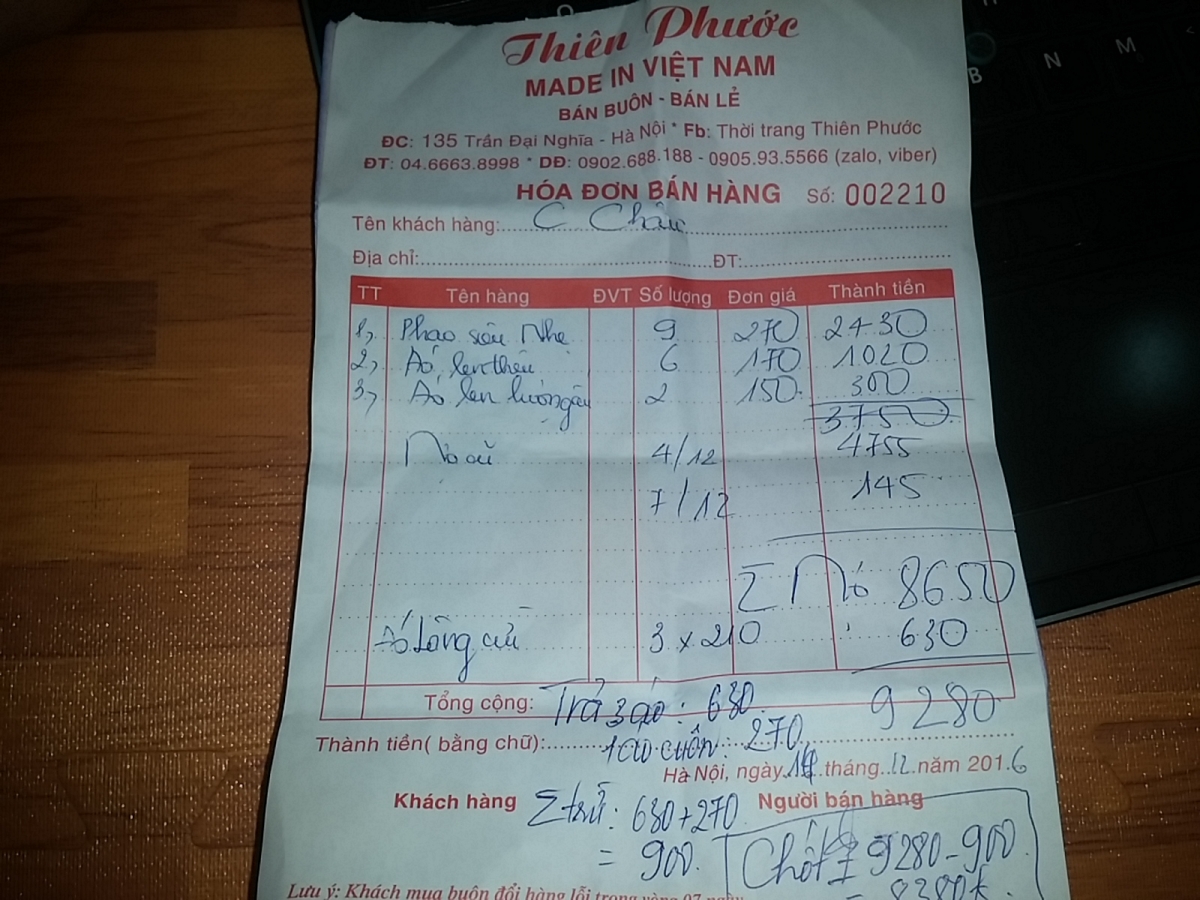 Thiên Phước
MADE IN VIỆT NAM
BÁN BUÔN - BÁN LẺ
ĐC: 135 Trần Đại Nghĩa - Hà Nội * Fb: Thời trang Thiên Phước
ĐT: 04.6663.8998 * DĐ: 0902.688.188 - 0905.93.5566 (zalo, viber)
HÓA ĐƠN BÁN HÀNG Số: 002210
Tên khách hàng: C Châu
Địa chỉ: ĐT:
TT Tên hàng ĐVT Số lượng Đơn giá Thành tiền
1, Phao siêu Nhẹ 9 270 2430
2, Áo len thêu 6 170 1020
3, Áo len 2 150 300
3750
Nợ cũ 4/12 4755
7/12 145
Σ Nợ 8650
Áo lông cừu 3 x 210 630
Tổng cộng: Trả 3 áo: 630 9280
Thành tiền( bằng chữ): cuốn: 270
Hà Nội, ngày tháng 12 năm 2016
Khách hàng Σ trừ: 630+270 Người bán hàng
= 900. Chốt Σ 9280-900
= 8380k.
Lưu ý: Khách mua buôn đổi hàng lỗi trong vòng 07 ngày
B N M